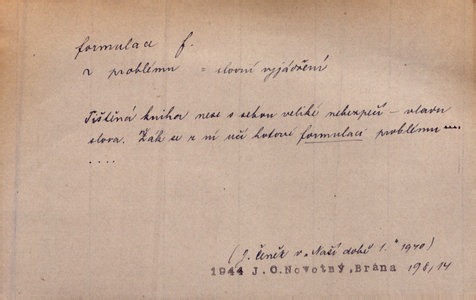 formulace f.
~ problému = slovní vyjádření
Tištěná kniha nese s sebou veliké nebezpečí – vládu
slova. Žák se z ní učí hotové formulaci problému ....
....
(J. Čeněk v „Naší době 1.“ 1940)
1944 J.O.Novotný,Brána 198,14